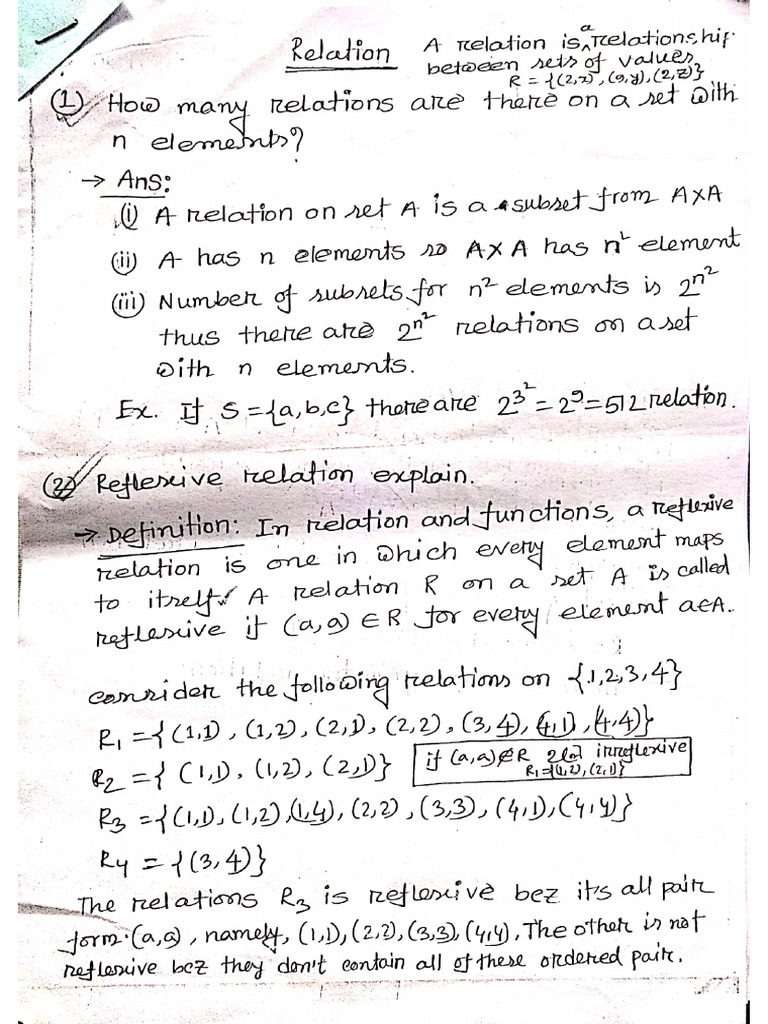 Relation A relation is a relationship
between sets of values
R = {(2,x), (9,y), (2,z)}
(1) How many relations are there on a set with
n elements?
→ Ans:
(i) A relation on set A is a subset from A×A
(ii) A has n elements so A×A has n² element
(iii) Number of subsets for n² elements is 2^n²
thus there are 2^n² relations on a set
with n elements.
Ex. If S = {a,b,c} there are 2^3² = 2^9 = 512 relation.
(2) Reflexive relation explain.
→ Definition: In relation and functions, a reflexive
relation is one in which every element maps
to itself. A relation R on a set A is called
reflexive if (a,a) ∈ R for every element a∈A.
consider the following relations on {1,2,3,4}
R₁ = {(1,1), (1,2), (2,1), (2,2), (3,4), (4,1), (4,4)}
R₂ = {(1,1), (1,2), (2,1)}
if (a,a)∉R irreflexive
R₁={(1,2),(2,1)}
R₃ = {(1,1), (1,2), (1,4), (2,2), (3,3), (4,1), (4,4)}
R₄ = {(3,4)}
The relations R₃ is reflexive bcz its all pair
form (a,a), namely, (1,1), (2,2), (3,3), (4,4), The other is not
reflexive bcz they don't contain all of these ordered pair.